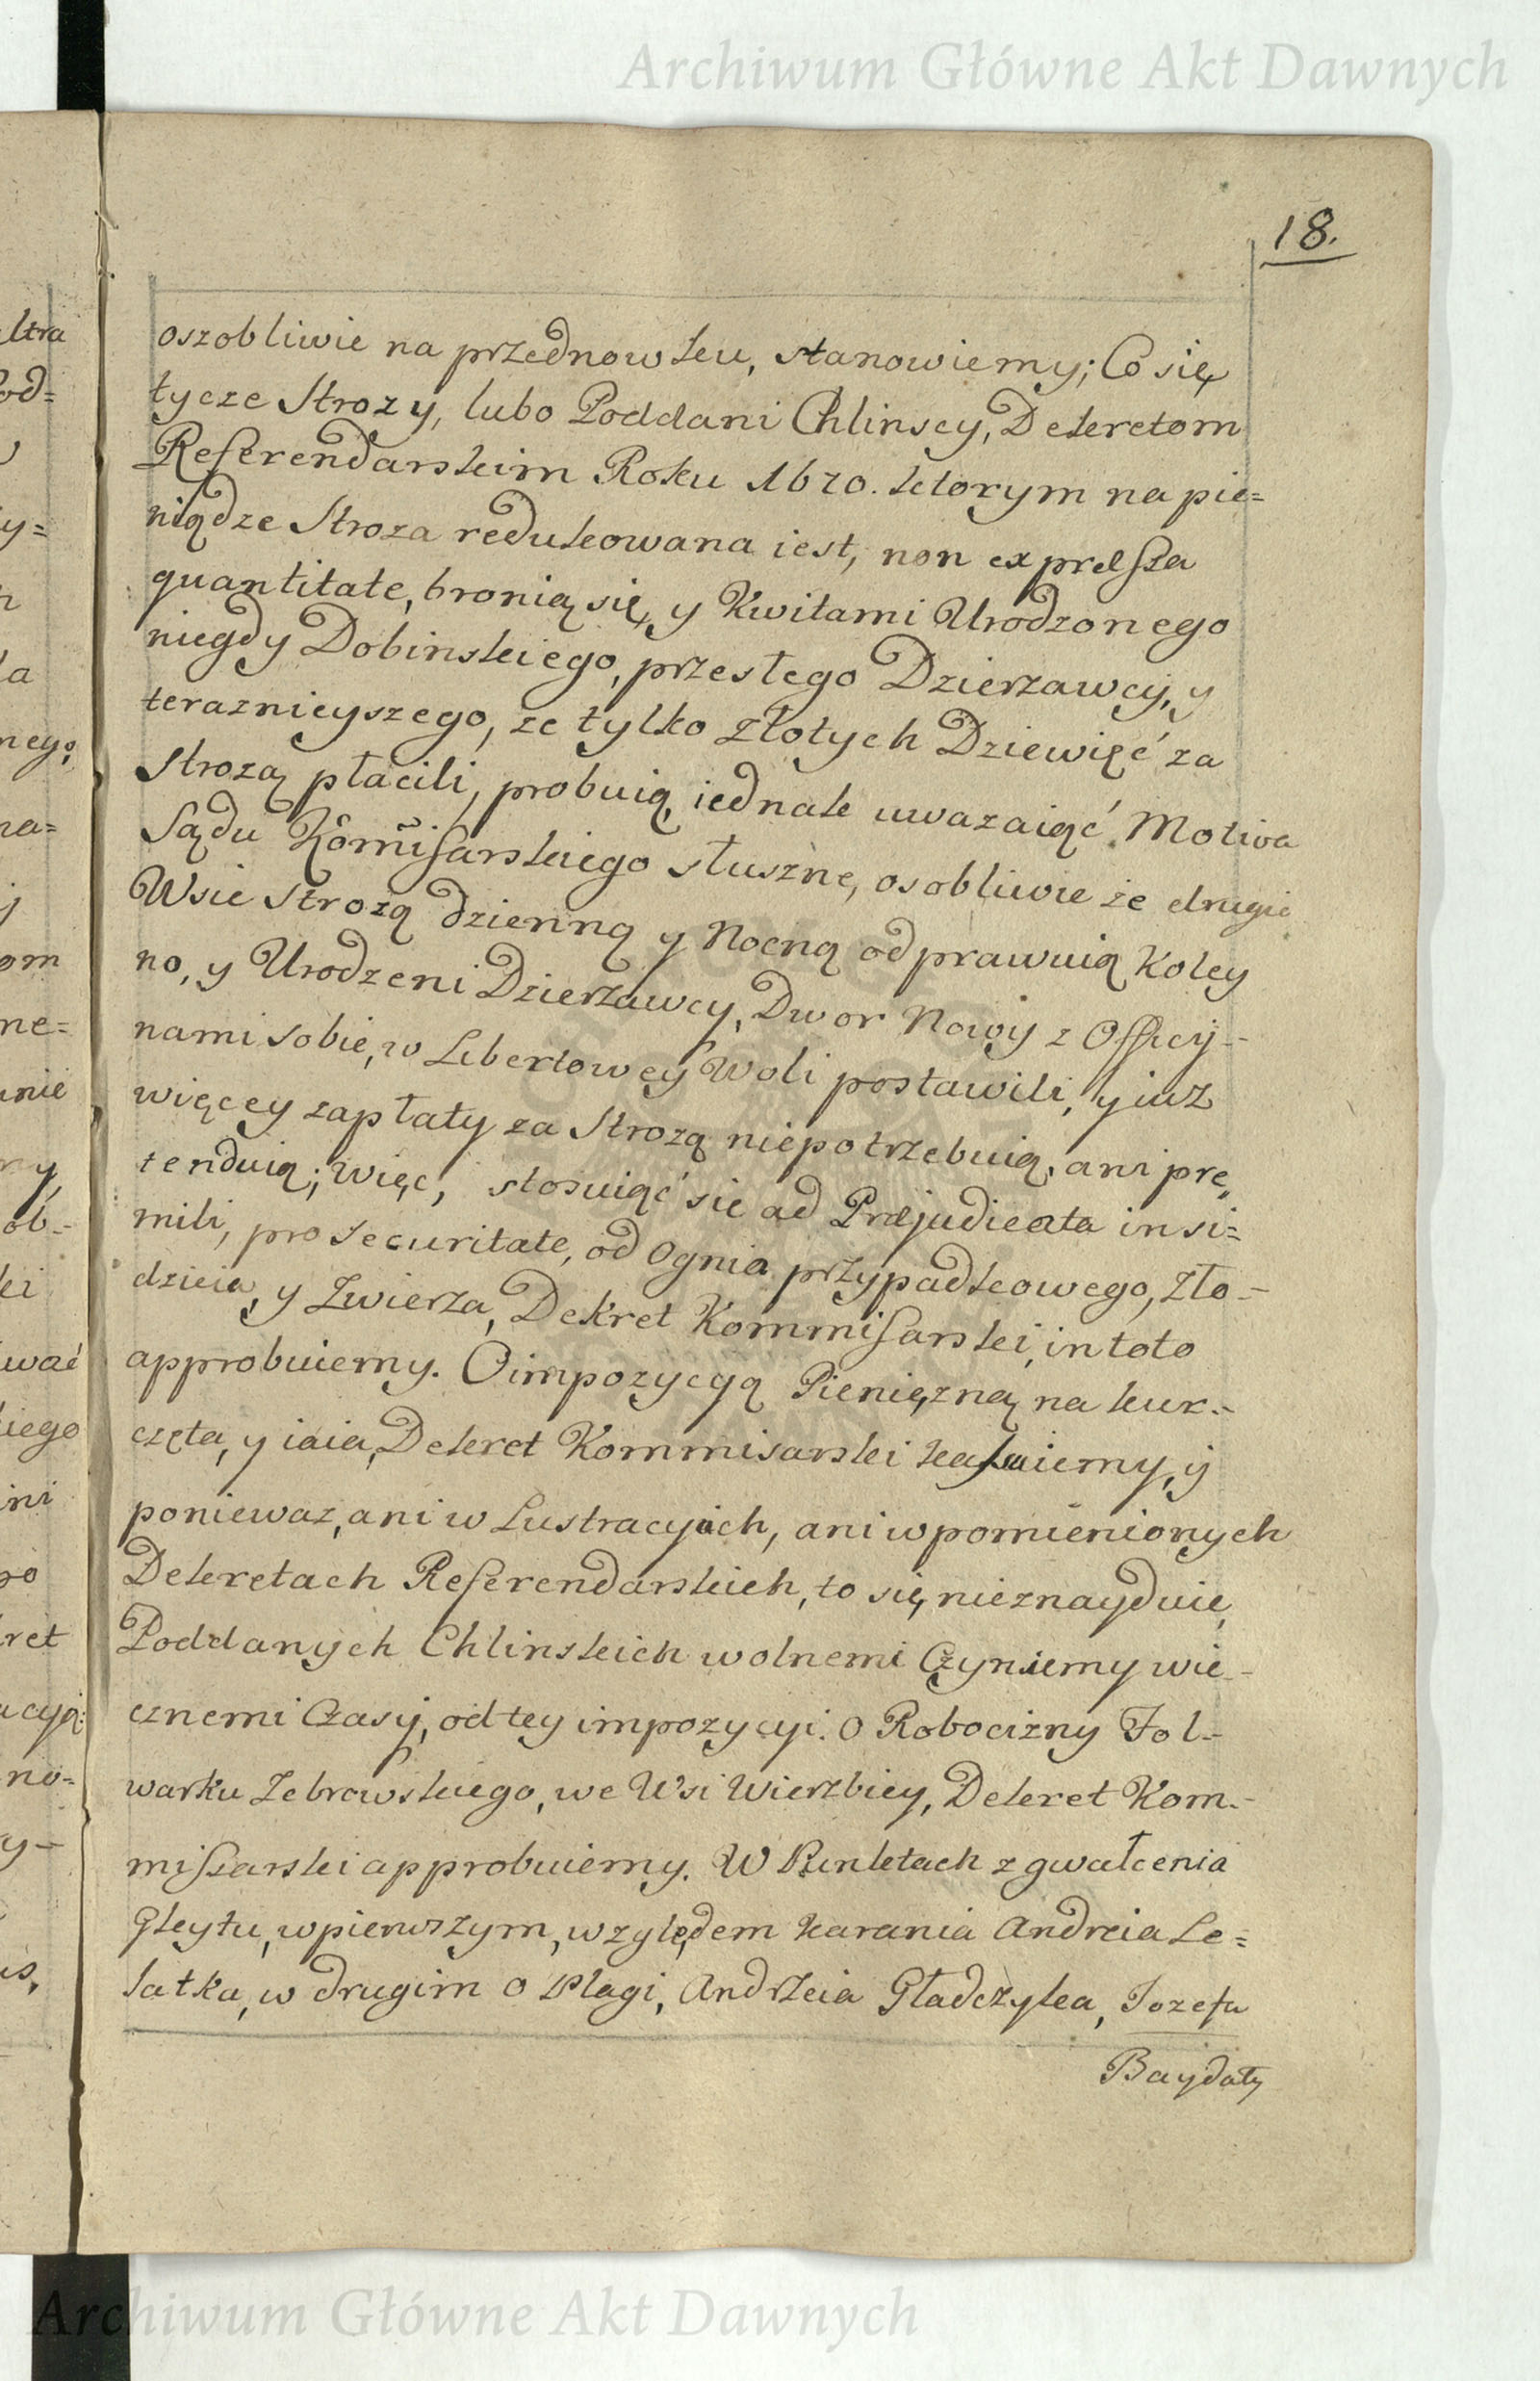 Archiwum Główne Akt Dawnych
18.
oszobliwie na przednowku, stanowiemy; Co się
tycze Strozy, lubo Poddani Chlinscy, Dekretom
Referendarskim Roku 1670. ktorym na pie=
niądze Stroza redukowana iest, non expressa
quantitate, bronią się, y Kwitami Urodzonego
niegdy Dobinskiego, przesłego Dzierzawcy, y
teraznieyszego, ze tylko złotych Dziewięć za
Strozą płacili, probuią, iednak uwazaiąć Motiva
Sądu Kommisarskiego słuszne, osobliwie że drugie
Wsie Strozą dzienną y Nocną odprawuią koley
no, y Urodzeni Dzierzawcy, Dwor Nowy z Officy-
nami sobie, w Libertowey Woli postawili, y iuz
więcey zapłaty za Strozą niepotrzebuią, ani prę
tenduią; Więc, stosuiąć sie ad Præjudicata in si=
mili, pro securitate, od Ognia przypadkowego, Zło-
dzieia, y Zwierza, Dekret Kommisarski, in toto
approbuiemy. O impozycyą Pienięzną na kur-
częta, y iaia, Dekret Kommisarski kasuiemy, y
poniewaz, ani w Lustracyach, ani w pomienionych
Dekretach Referendarskich, to się nieznayduie,
Poddanych Chlinskich wolnemi Czyniemy wie-
cznemi Czasy, od tey impozycyi. O Robocizny Fol-
warku Zebrowskiego, we Wsi Wierzbiey, Dekret Kom-
missarski approbuiemy. W Punktach zgwałcenia
Gleytu, w pierwszym, względem karania Andreia Le=
latka, w drugim o Plagi, Andrzeia Gładczyka, Jozefa
Baydały
Archiwum Główne Akt Dawnych